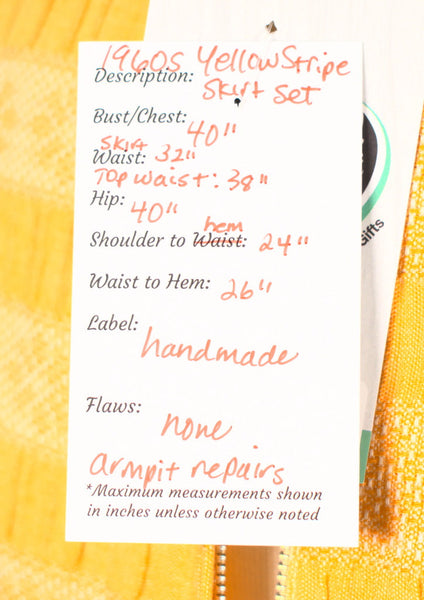 1960s Yellow Stripe
Description: Skirt Set
Bust/Chest: 40"
Skirt
Waist: 32"
Top waist: 38"
Hip: 40"
hem
Shoulder to Waist: 24"
Waist to Hem: 26"
Label:
handmade
Flaws:
none
armpit repairs
*Maximum measurements shown
in inches unless otherwise noted
Gifts